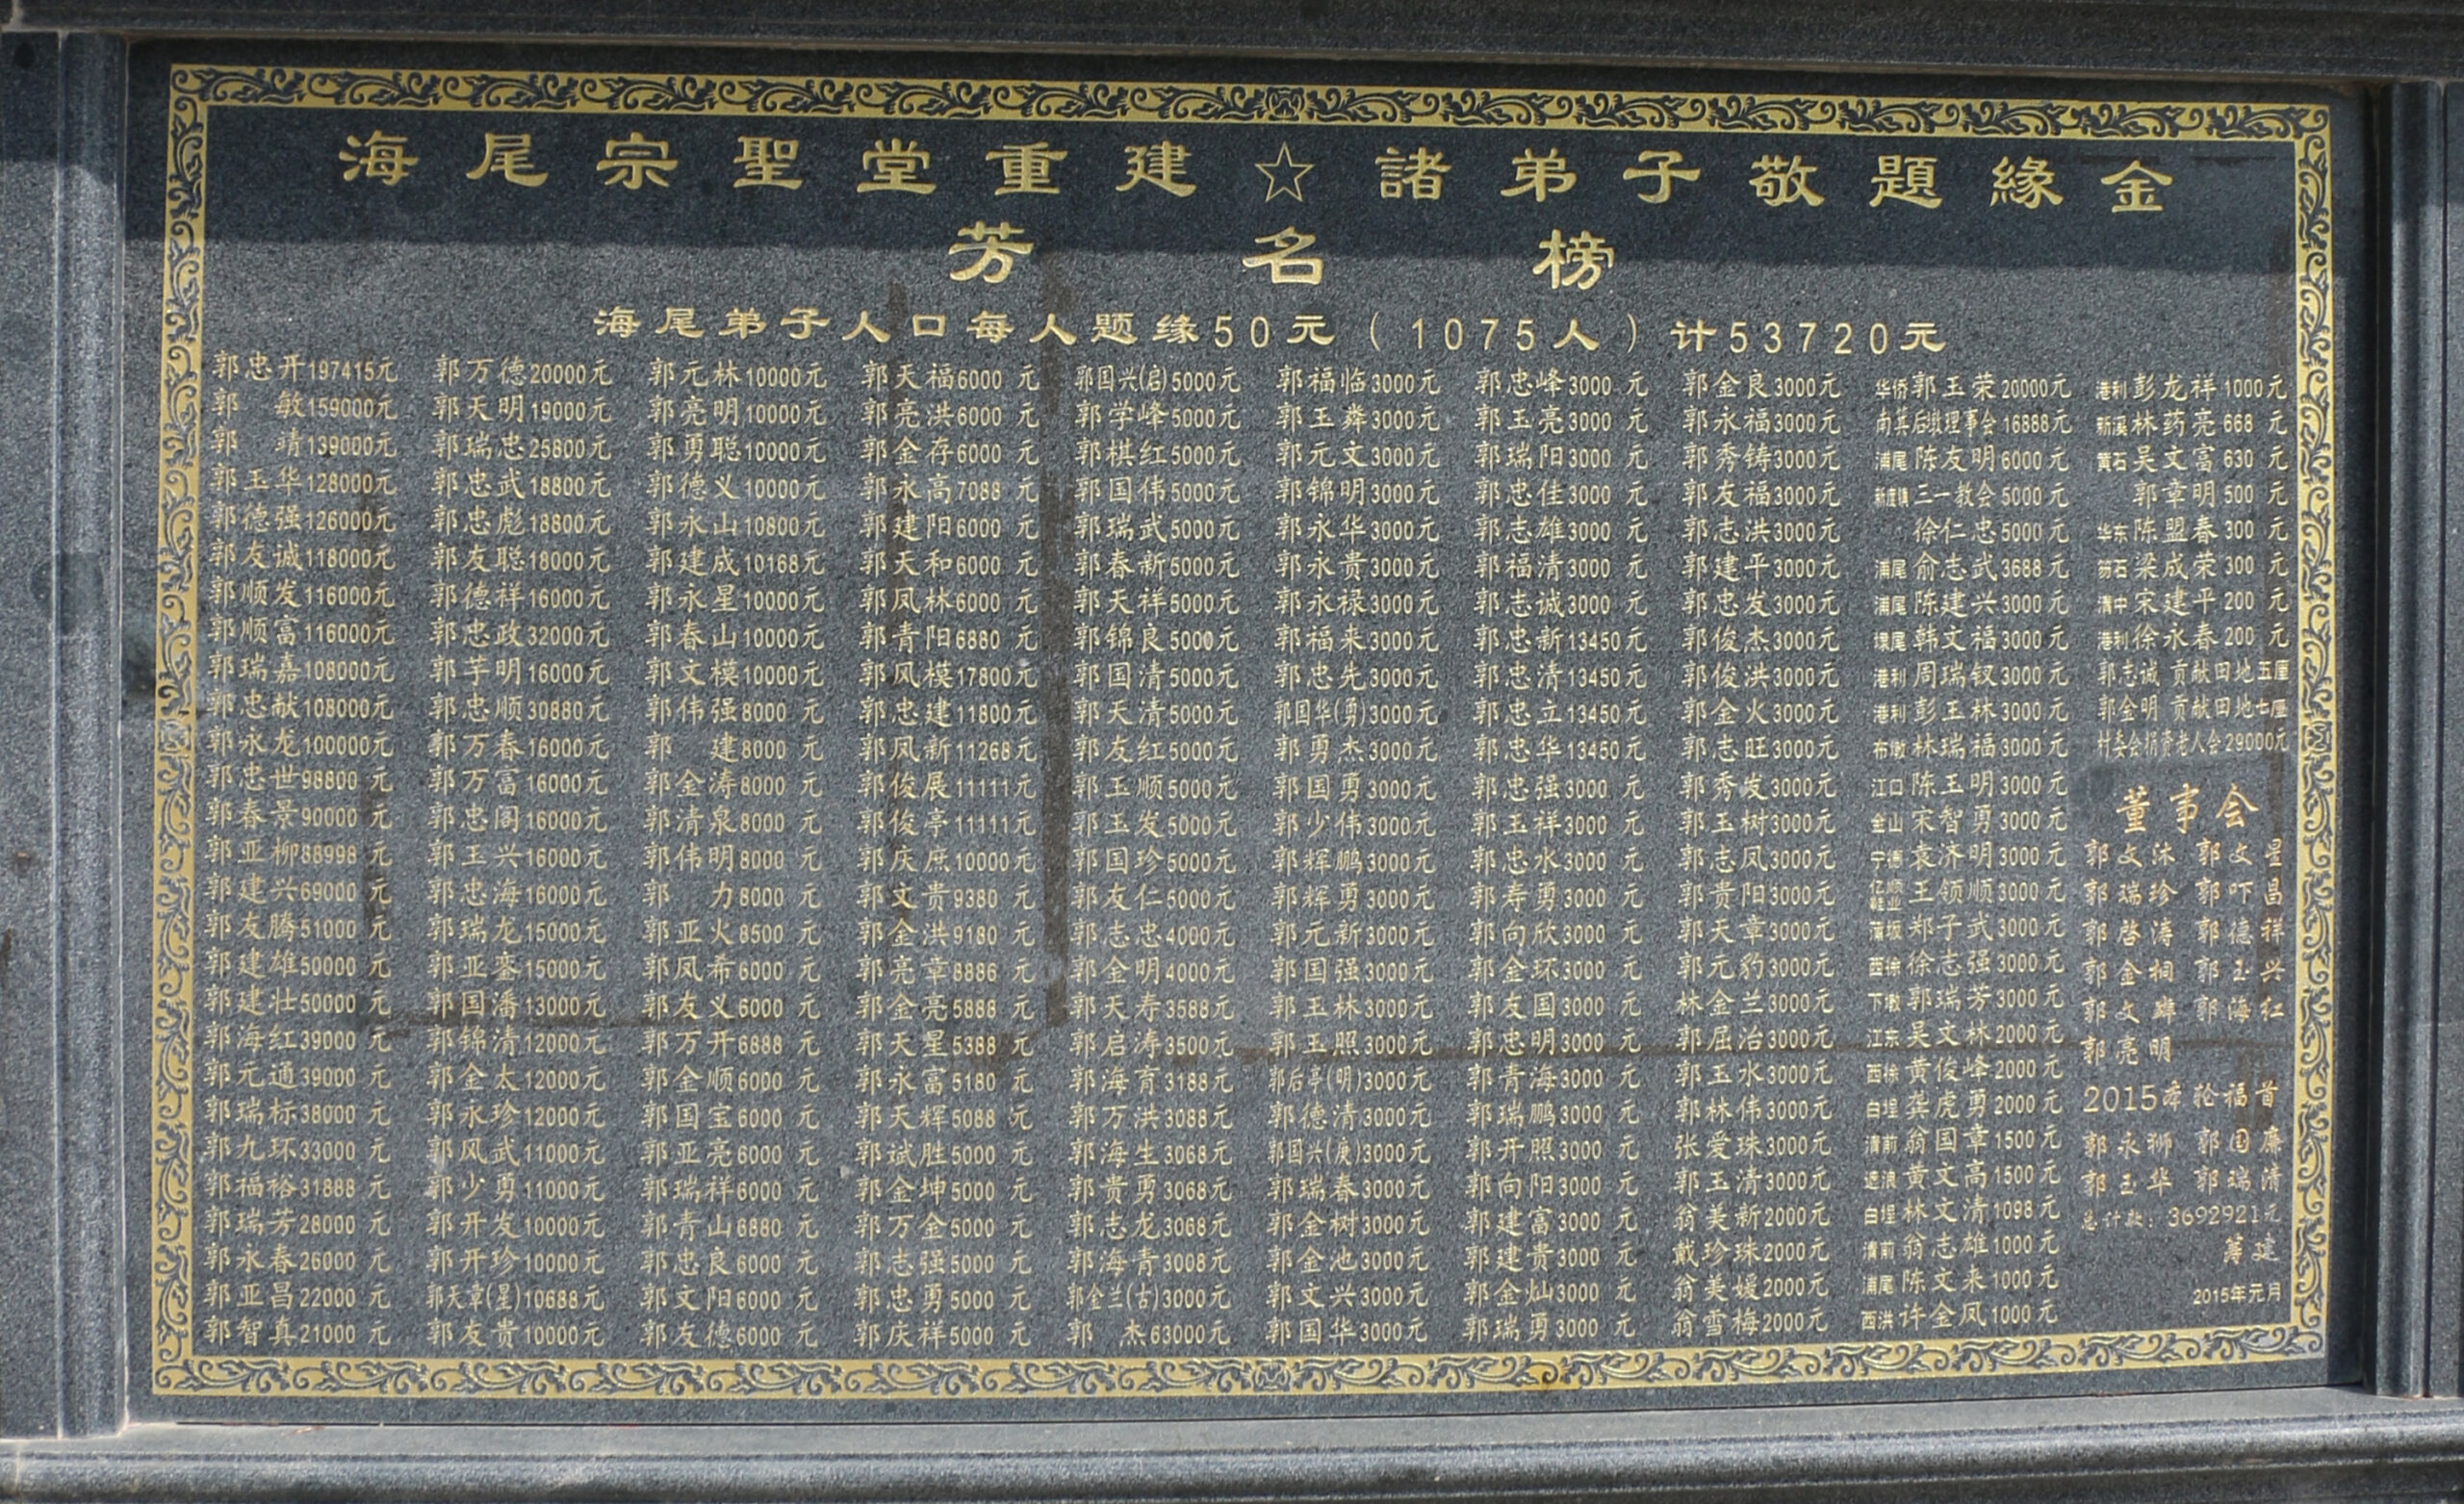 海尾宗聖堂重建☆諸弟子敬題緣金
芳名榜
海尾弟子人口每人题缘50元（1075人）计53720元
郭忠开197415元 郭万德20000元 郭元林10000元 郭天福6000元 郭国兴(启)5000元 郭福临3000元 郭忠峰3000元 郭金良3000元 华侨郭玉荣20000元 港利彭龙祥1000元
郭敏159000元 郭天明19000元 郭亮明10000元 郭亮洪6000元 郭学峰5000元 郭玉粦3000元 郭玉亮3000元 郭永福3000元 南箕后墩理事会16888元 新溪林药亮668元
郭靖139000元 郭瑞忠25800元 郭勇聪10000元 郭金存6000元 郭棋红5000元 郭元文3000元 郭瑞阳3000元 郭秀铸3000元 浦尾陈友明6000元 黄石吴文富630元
郭玉华128000元 郭忠武18800元 郭德义10000元 郭永高7088元 郭国伟5000元 郭锦明3000元 郭忠佳3000元 郭友福3000元 新度镇三一教会5000元 郭章明500元
郭德强126000元 郭忠彪18800元 郭永山10800元 郭建阳6000元 郭瑞武5000元 郭永华3000元 郭志雄3000元 郭志洪3000元 徐仁忠5000元 华东陈盟春300元
郭友诚118000元 郭友聪18000元 郭建成10168元 郭天和6000元 郭春新5000元 郭永贵3000元 郭福清3000元 郭建平3000元 浦尾俞志武3688元 笏石梁成荣300元
郭顺发116000元 郭德祥16000元 郭永星10000元 郭凤林6000元 郭天祥5000元 郭永禄3000元 郭志诚3000元 郭忠发3000元 浦尾陈建兴3000元 清中宋建平200元
郭顺富116000元 郭忠政32000元 郭春山10000元 郭青阳6880元 郭锦良5000元 郭福来3000元 郭忠新13450元 郭俊杰3000元 埭尾韩文福3000元 港利徐永春200元
郭瑞嘉108000元 郭芋明16000元 郭文模10000元 郭风模17800元 郭国清5000元 郭忠先3000元 郭忠清13450元 郭俊洪3000元 港利周瑞钗3000元 郭志诚贡献田地五厘
郭忠献108000元 郭忠顺30880元 郭伟强8000元 郭忠建11800元 郭天清5000元 郭国华(勇)3000元 郭忠立13450元 郭金火3000元 港利彭玉林3000元 郭金明贡献田地七厘
郭永龙100000元 郭万春16000元 郭建8000元 郭凤新11268元 郭友红5000元 郭勇杰3000元 郭忠华13450元 郭志旺3000元 布墩林瑞福3000元 村委会捐资老人会29000元
郭忠世98800元 郭万富16000元 郭金涛8000元 郭俊展11111元 郭玉顺5000元 郭国勇3000元 郭忠强3000元 郭秀发3000元 江口陈玉明3000元
郭春景90000元 郭忠阁16000元 郭清泉8000元 郭俊亭11111元 郭玉发5000元 郭少伟3000元 郭玉祥3000元 郭玉树3000元 金山宋智勇3000元 董事会
郭亚柳88998元 郭玉兴16000元 郭伟明8000元 郭庆庶10000元 郭国珍5000元 郭辉鹏3000元 郭忠水3000元 郭志凤3000元 宁德袁济明3000元 郭文沐 郭文星
郭建兴69000元 郭忠海16000元 郭力8000元 郭文贵9380元 郭友仁5000元 郭辉勇3000元 郭寿勇3000元 郭贵阳3000元 亿顺鞋业王领顺3000元 郭瑞珍 郭吓昌
郭友腾51000元 郭瑞龙15000元 郭亚火8500元 郭金洪9180元 郭志忠4000元 郭元新3000元 郭向欣3000元 郭天章3000元 蒲坂郑子武3000元 郭啓涛 郭德祥
郭建雄50000元 郭亚銮15000元 郭凤希6000元 郭亮章8886元 郭金明4000元 郭国强3000元 郭金环3000元 郭元豹3000元 西徐徐志强3000元 郭金桐 郭玉兴
郭建壮50000元 郭国潘13000元 郭友义6000元 郭金亮5888元 郭天寿3588元 郭玉林3000元 郭友国3000元 林金兰3000元 下墩郭瑞芳3000元 郭文 郭海红
郭海红39000元 郭锦清12000元 郭万开6888元 郭天星5388元 郭启涛3500元 郭玉照3000元 郭忠明3000元 郭屈治3000元 江东吴文林2000元 郭亮明
郭元通39000元 郭金太12000元 郭金顺6000元 郭永富5180元 郭海育3188元 郭后亭(明)3000元 郭青海3000元 郭玉水3000元 西徐黄俊峰2000元
郭瑞标38000元 郭永珍12000元 郭国宝6000元 郭天辉5088元 郭万洪3088元 郭德清3000元 郭瑞鹏3000元 郭林伟3000元 白埕龚虎勇2000元 2015年轮福首
郭九环33000元 郭风武11000元 郭亚亮6000元 郭斌胜5000元 郭海生3068元 郭国兴(庚)3000元 郭开照3000元 张爱珠3000元 清前翁国章1500元 郭永狮 郭国廉
郭福裕31888元 郭少勇11000元 郭瑞祥6000元 郭金坤5000元 郭贵勇3068元 郭瑞春3000元 郭向阳3000元 郭玉清3000元 黄文高1500元 郭玉华 郭瑞清
郭瑞芳28000元 郭开发10000元 郭青山6880元 郭万金5000元 郭志龙3068元 郭金树3000元 郭建富3000元 翁美新2000元 白埕林文清1098元 总计款：3692921元
郭永春26000元 郭开珍10000元 郭忠良6000元 郭志强5000元 郭海青3008元 郭金池3000元 郭建贵3000元 戴珍珠2000元 清前翁志雄1000元 筹建
郭亚昌22000元 郭天章(星)10688元 郭文阳6000元 郭忠勇5000元 郭金兰(古)3000元 郭文兴3000元 郭金灿3000元 翁美媛2000元 浦尾陈文来1000元 2015年元月
郭智真21000元 郭友贵10000元 郭友德6000元 郭庆祥5000元 郭杰63000元 郭国华3000元 郭瑞勇3000元 翁雪梅2000元 西洪许金凤1000元